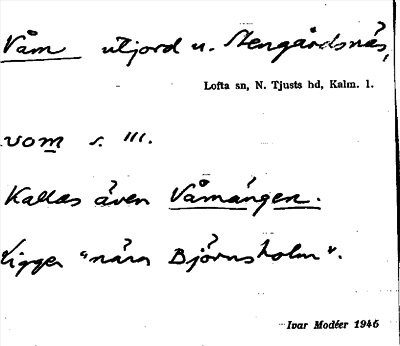 Våm utjord u. Stengårdsnäs,
Lofta sn, N. Tjusts hd, Kalm. l.
vom s. III.
Kallas även Våmängen.
Ligger "nära Björnsholm".
Ivar Modéer 1946